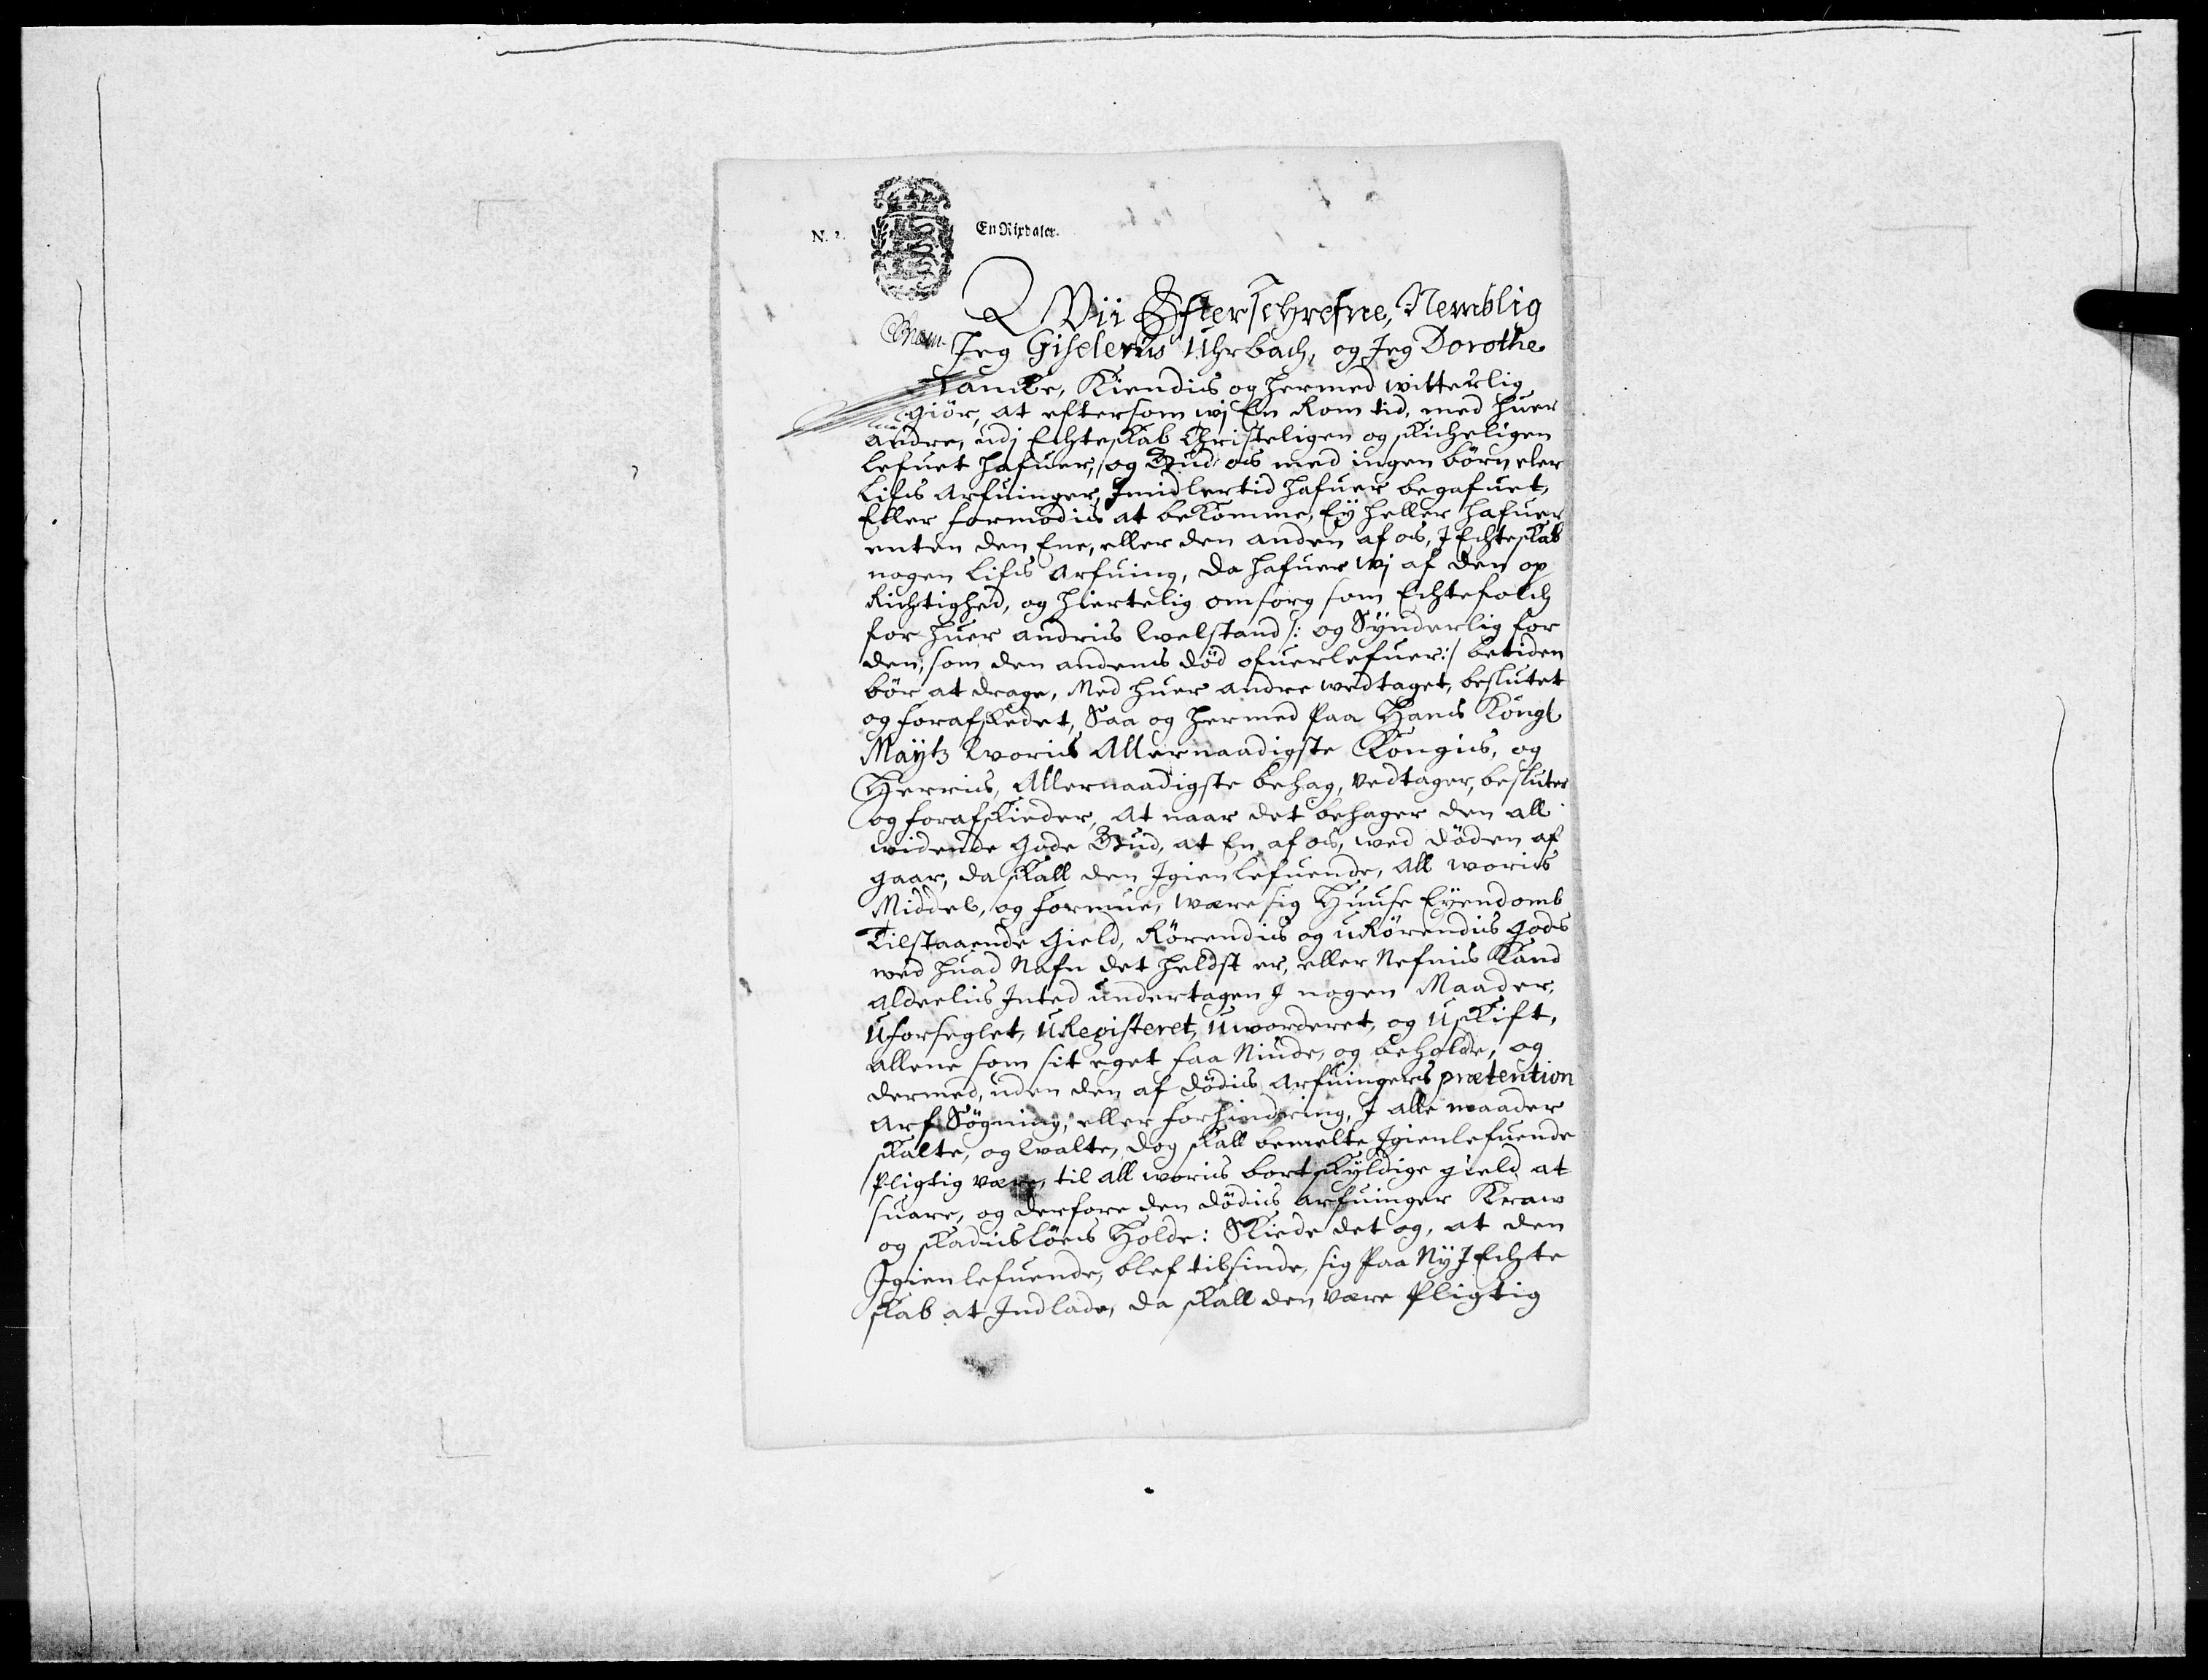 N. 2.
En Rixdaler.
Wii Efterschrefne, Nemblig
Jeg Giselerus Uhrbach, og Jeg Dorothe
Kiendis og hermed witterlig
giör, at eftersom wj En Rom tid, med huer
andre, udj Echteskab Christeligen og skicheligen
lefuet hafuer, og Gud os med ingen börn eler
Lifis Arfuinger, Imidlertid hafuer begafuet,
Eller formodis at bekomme, Ey heller hafuer
enten den Ene, eller den anden af os, J Echteskab
nogen Lifis Arfuing, da hafuer wj af den op
Richtighed, og hiertelig omsorg som Echtefolch
for huer andris Welstand /: og Synderlig for
den, som den andens död ofuerlefuer :/ betiden
bör at drage, Med huer andre wedtaget, besluttet
og forafskedet, Saa og hermed paa Hans Kongl
Maytz Woris Allernaadigste Kongis, og
Herris, Allernaadigste behag, vedtager, besluter
og forafskieder, At naar det behager den all
widende gode Gud, at En af os, wed döden af
gaar, da skall den Igienlefuende, All woris
Middel, og formue, were sig Huuse Eyendomb
Tilstaaende Gield, Rörendis og uRörendis gods
wed huad Nafn det heldst er, eller Nefnis Kand
aldeelis Inted undertagen J nogen Maader,
Uforseglet, URegisteret, uworderet, og Uskift,
allene som sit eget faa Niude, og beholde, og
dermed, uden den af dödis Arfuingers prætention
Arf Sögning, eller forhindring, J alle maader
skalte, og Walte, dog skall bemelte Igienlefuende
pligtig være, til all woris bortskyldige gield at
suare, og derfore den dödis arfuinger Kraw
og skadislöes Holde: Skiede det og, at den
Igienlefuende, blef tilsinde, sig paa Ny J Echte
skab at Indlade, da skall den være pligtig